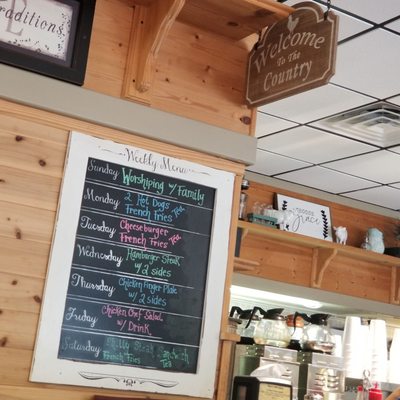 Traditions
Welcome
To The
Country
Weekly Menu
Sunday
Worshiping w/ Family
Monday
2 Hot Dogs
French Fries
Tea
Tuesday
Cheeseburger
French Fries
Tea
Wednesday
Hamburger Steak
w/ 2 sides
Thursday
Chicken Finger Plate
w/ 2 sides
Friday
Chicken Chef Salad
w/ Drink
Saturday
Philly Steak Sandwich
French Fries
Tea
Grace